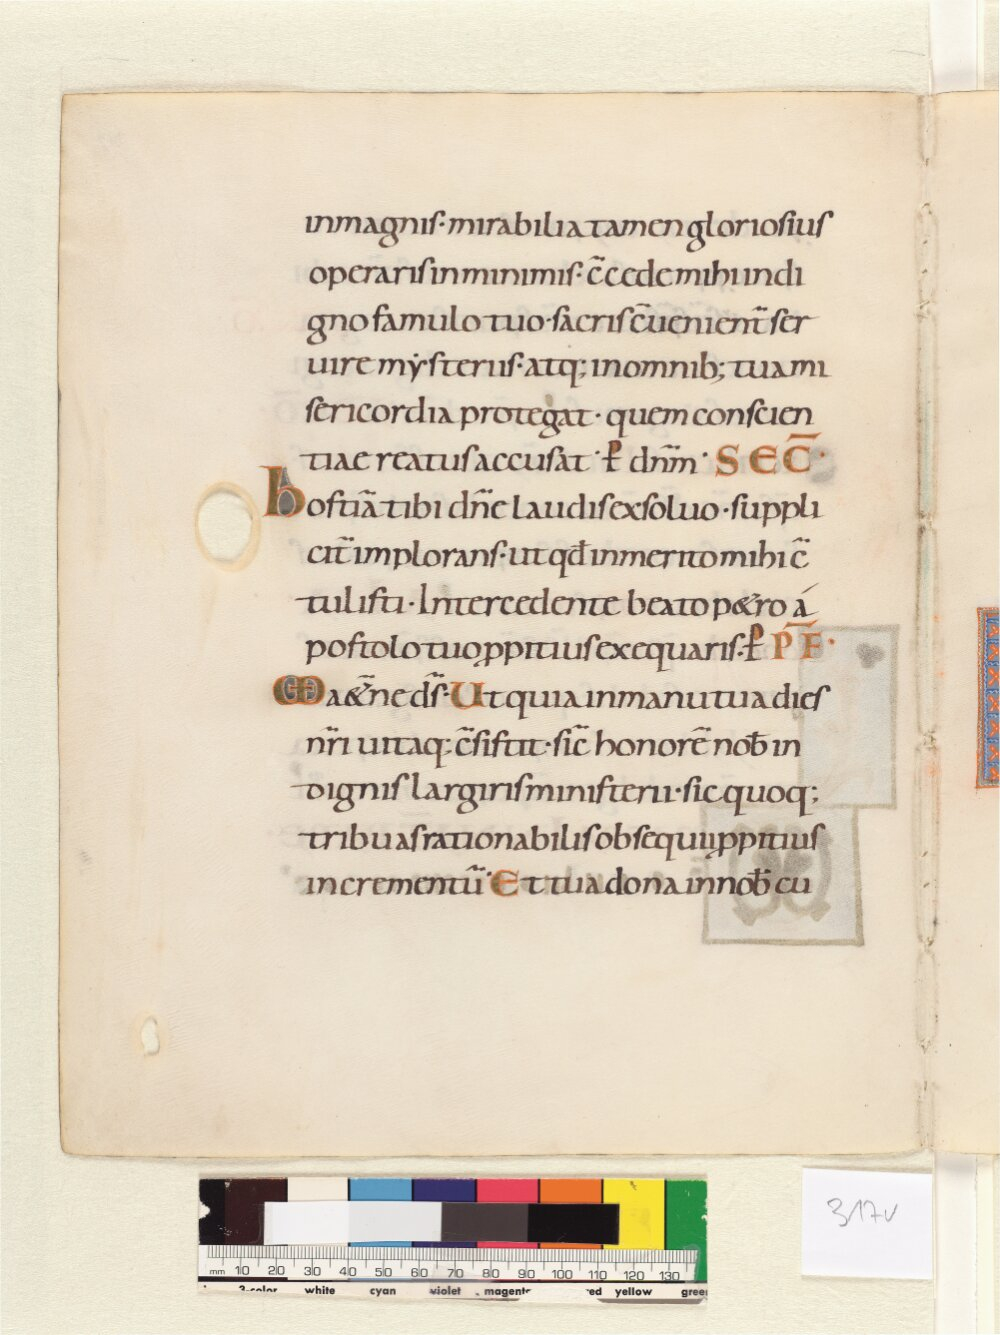 inmagnis·mirabilia tamen gloriosius
operaris in minimis· c̄cede mihi indi
gno famulo tuo·sacris c̄uenient̄ ser
uire mẏsteriis·atq; in omnib; tua mi
sericordia protegat· quem conscien
tiae reatus accusat· P̄ dn̄m· SEC̄·
hostiā tibi dn̄e laudis exsoluo·suppli
cit̄ implorans·ut qd̄ inmerito mihi c̄
tulisti·Intercedente beato p&ro á
postolo tuo ꝓpitius exequaris·P̄ P̄F·
Ma&̄ne ds̄·Ut quia in manu tua dies
nr̄i uitaq; c̄sistit·sic̄ honorē nob̄ in
dignis largiris ministerii·sic quoq;
tribuas rationabilis obsequii ꝓpitius
incrementū· Et tua dona in nob̄ cu
317v
mm 10 20 30 40 50 60 70 80 90 100 110 120 130
3-color white cyan violet magenta red yellow green